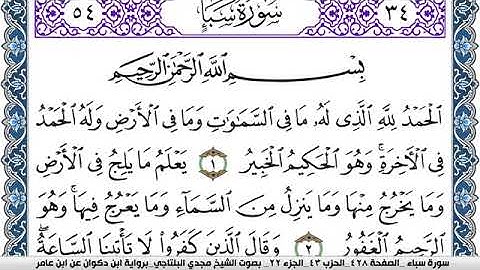 ٥٤ سُورَةُ سَبَإٍ ٣٤
بِسْمِ اللَّهِ الرَّحْمَٰنِ الرَّحِيمِ
الْحَمْدُ لِلَّهِ الَّذِى لَهُۥ مَا فِى السَّمَٰوَٰتِ وَمَا فِى الْأَرْضِ وَلَهُ الْحَمْدُ
فِى الْأَخِرَةِ ۚ وَهُوَ الْحَكِيمُ الْخَبِيرُ ١ يَعْلَمُ مَا يَلِجُ فِى الْأَرْضِ
وَمَا يَخْرُجُ مِنْهَا وَمَا يَنزِلُ مِنَ السَّمَآءِ وَمَا يَعْرُجُ فِيهَا ۚ وَهُوَ
الرَّحِيمُ الْغَفُورُ ٢ وَقَالَ الَّذِينَ كَفَرُوا لَا تَأْتِينَا السَّاعَةُ ۖ
سورة سباء _الصفحة ٤٢٨_ الحزب ٤٣_الجزء ٢٢_ بصوت الشيخ مجدي البلتاجي_برواية ابن دكوان عن ابن عامر